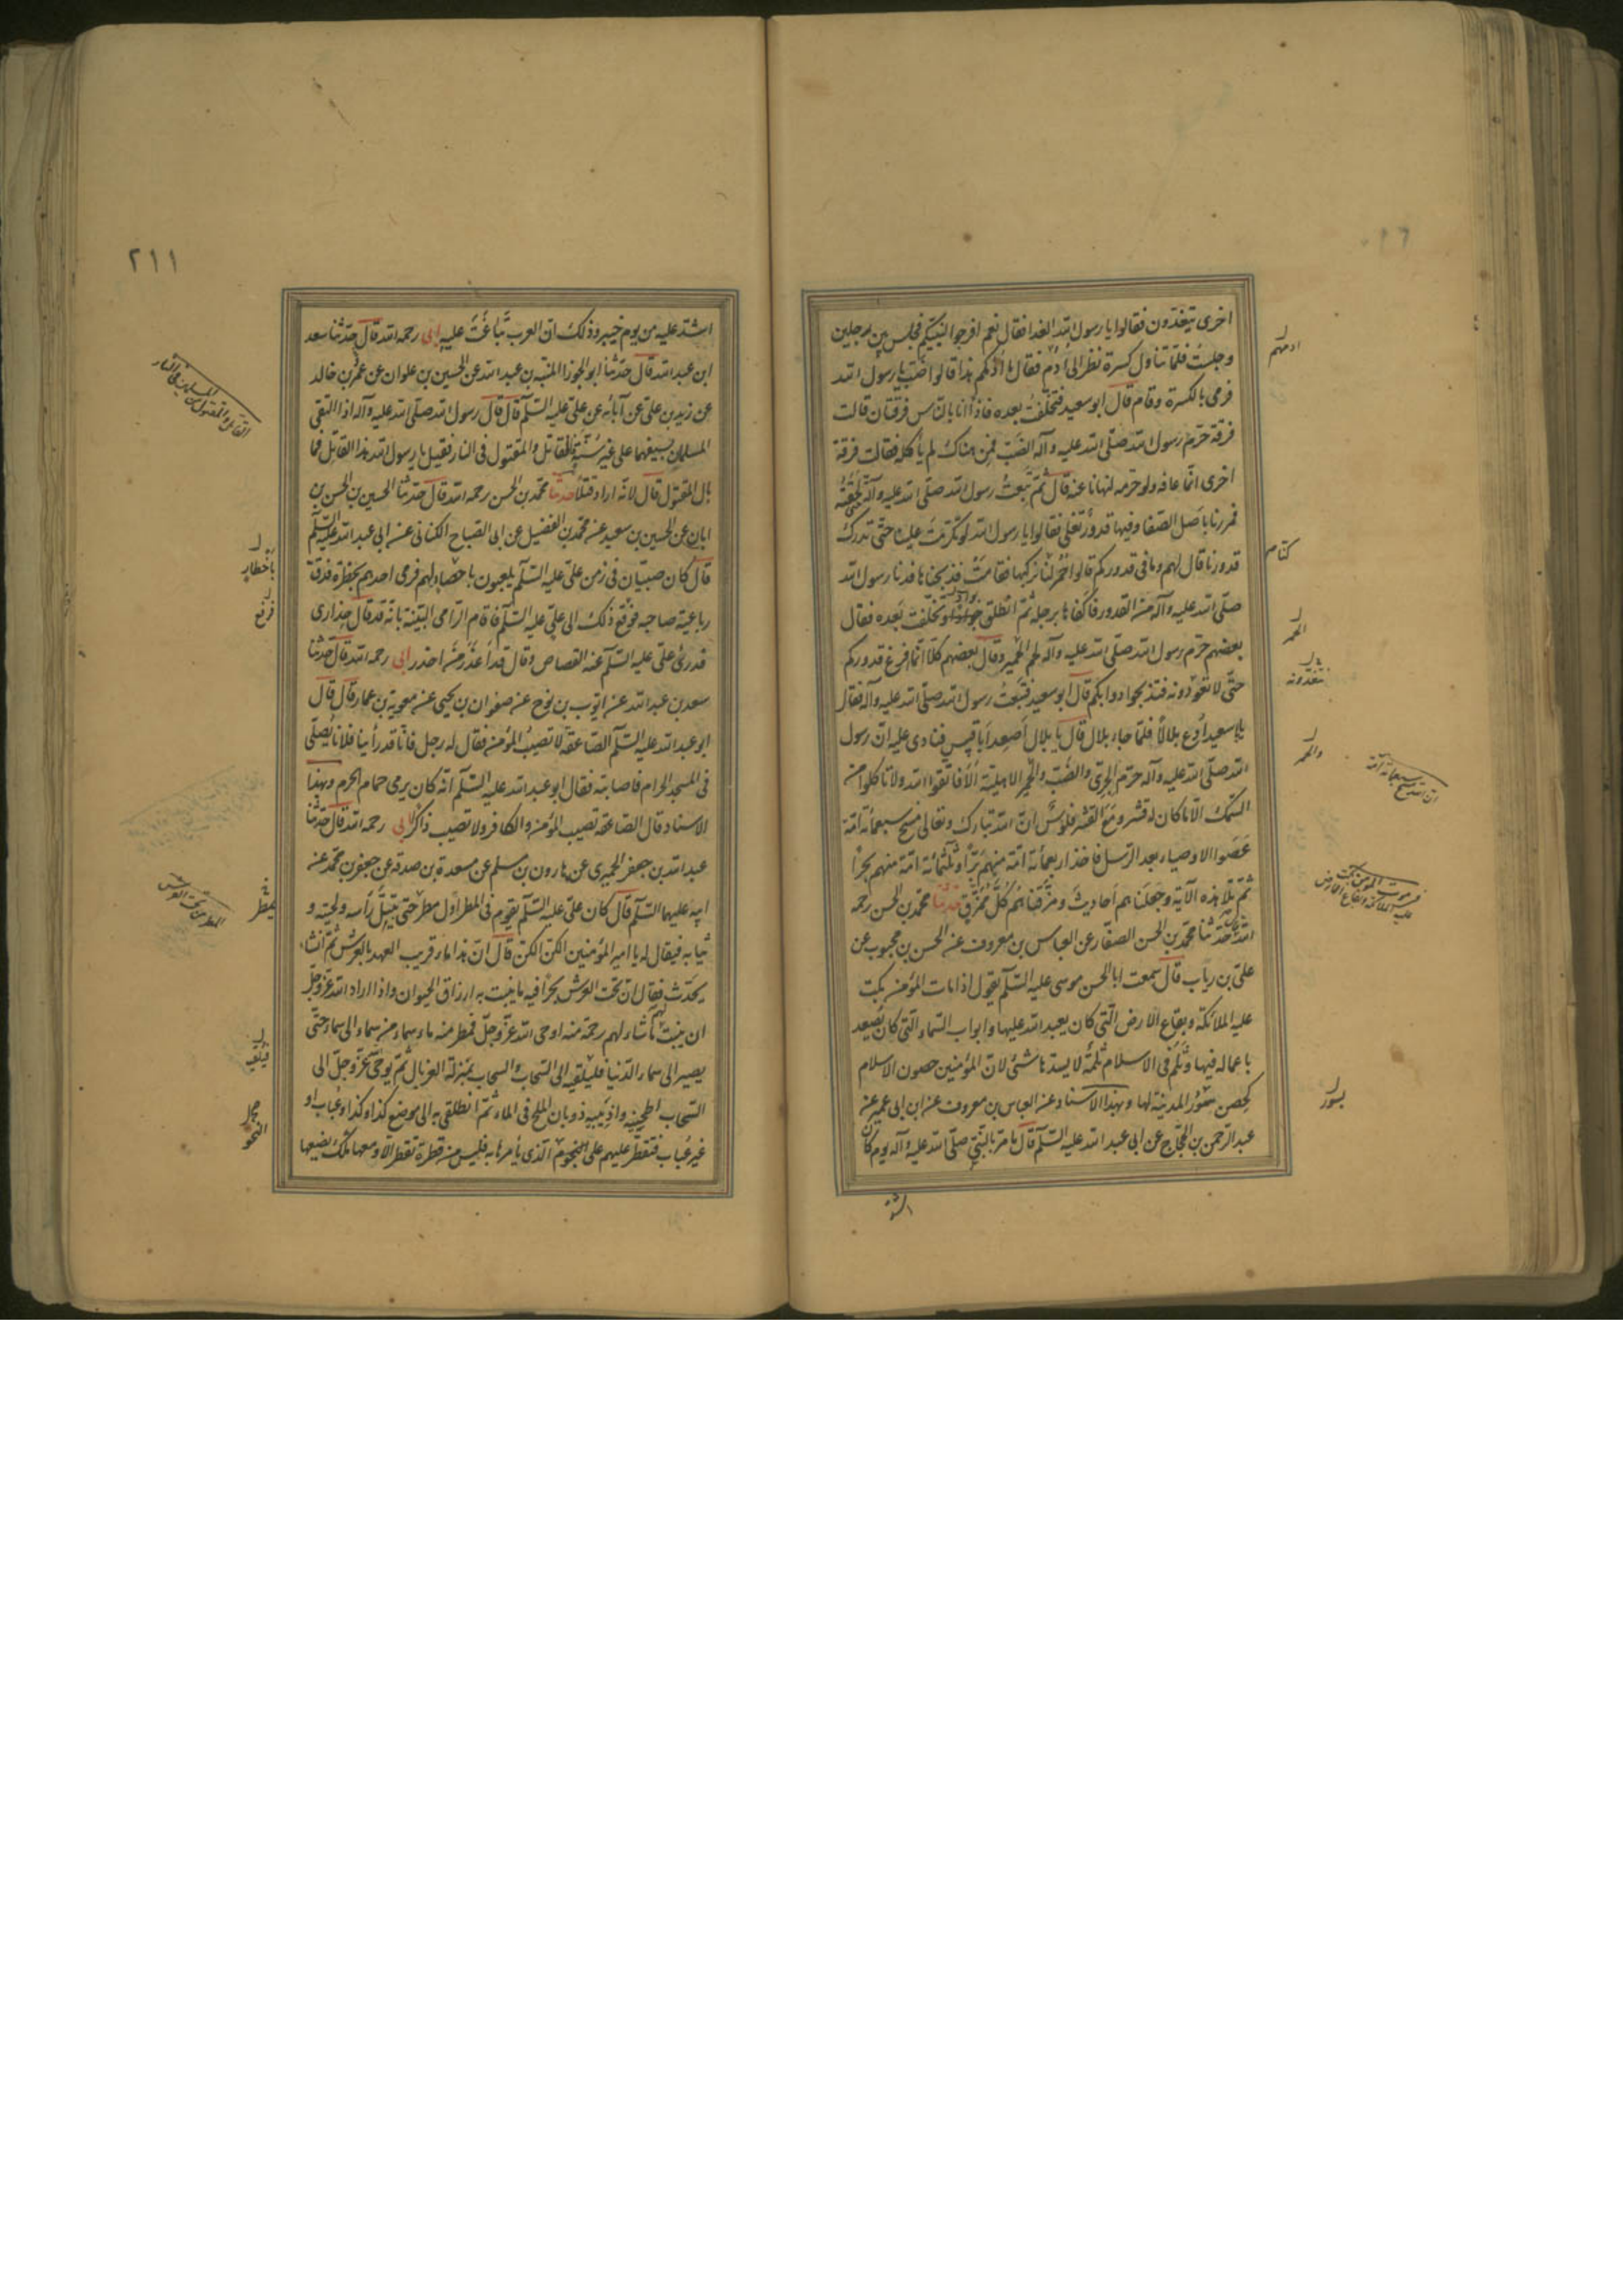 اخرى يتغدون فقالوا يا رسول الله الغدا فقال نعم افرجوا لنبيكم فجلس بين رجلين
وجلست فلما تناول كسرة نظر الى أدم فقال ما أدمكم هذا قالوا ضب يا رسول الله
فرمى بالكسرة وقام قال ابو سعيد فتخلفت بعده فاذا انا بالناس فرقتان قالت
فرقة حرم رسول الله صلى الله عليه وآله الضب فمن هناك لم يأكله فقالت فرقة
اخرى انما عافه ولو حرمه لنهانا عنه قال ثم تبعت رسول الله صلى الله عليه وآله حتى لحقته
فمررنا باصل الصفا وفيها قدور تغلي فقالوا يا رسول الله لو تكرمت علينا حتى تدرك
قدورنا قال لهم وما في قدوركم قالوا حمر لنا نركبها فقامت فذبحناها فدنا رسول الله
صلى الله عليه وآله من القدور فاكفاها برجله ثم انطلق جوادا وتخلفت بعده فقال
بعضهم حرم رسول الله صلى الله عليه وآله لحم الحمير وقال بعضهم كلا انما افرغ قدوركم
حتى لا تعودونه فتذبحوا دوابكم قال ابو سعيد فتبعت رسول الله صلى الله عليه وآله فقال
يابا سعيد ادع بلالا فلما جاء بلال قال يا بلال اصعد ابا قبيس فناد عليه ان رسول
الله صلى الله عليه وآله حرم الجري والضب والحمر الاهلية ألا فاتقوا الله ولا تأكلوا من
السمك الا ما كان له قشر ومع القشر فلوس ان الله تبارك وتعالى مسخ سبعمائة امة
عصوا الاوصياء بعد الرسل فاخذ اربعمائة امة منهم برا وثلثمائة امة منهم بحرا
ثم تلا هذه الآية وجعلناهم احاديث ومزقناهم كل ممزق حدثنا محمد بن الحسن رحمه
الله قال حدثنا محمد بن الحسن الصفار عن العباس بن معروف عن الحسن بن محبوب عن
علي بن رياب قال سمعت ابا الحسن موسى عليه السلم يقول اذا مات المؤمن بكت
عليه الملائكة وبقاع الارض التي كان يعبد الله عليها وابواب السماء التي كان يصعد
باعماله فيها وثلم في الاسلام ثلمة لا يسدها شئ لان المؤمنين حصون الاسلام
كحصن سور المدينة لها وبهذا الاسناد عن العباس بن معروف عن ابن ابي عمير عن
عبد الرحمن بن الحجاج عن ابي عبد الله عليه السلم قال ما مر بالنبي صلى الله عليه وآله يوم كان
كتاب
الحمر
والحمر
بسور
اشد
٢١١
اشد عليه من يوم خيبر وذلك ان العرب تباغت عليه ابي رحمه الله قال حدثنا سعد
ابن عبد الله قال حدثنا ابو الجوزا المنبه بن عبد الله عن الحسين بن علوان عن عمر بن خالد
عن زيد بن علي عن آبائه عن علي عليه السلم قال قال رسول الله صلى الله عليه وآله اذا التقى
المسلمان بسيفهما على غير سنة فالقاتل والمقتول في النار فقيل يا رسول الله هذا القاتل فما
بال المقتول قال لانه اراد قتلا حدثنا محمد بن الحسن رحمه الله قال حدثنا الحسين بن الحسن بن
ابان عن الحسين بن سعيد عن محمد بن الفضيل عن ابي الصباح الكناني عن ابي عبد الله عليه السلم
قال كان صبيان في زمن علي عليه السلم يلعبون باخطار لهم فرمى احدهم بخطره فدق
رباعية صاحبه فرفع ذلك الى علي عليه السلم فاقام الرامي البينة بانه قد قال حذاري
فدرئ علي عليه السلم عنه القصاص وقال قد أعذر من حذر ابي رحمه الله قال حدثنا
سعد بن عبد الله عن ايوب بن نوح عن صفوان بن يحيى عن معوية بن عمار قال قال
ابو عبد الله عليه السلم الصاعقة لا تصيب المؤمن فقال له رجل فانا قد رأينا فلانا يصلي
في المسجد الحرام فاصابته فقال ابو عبد الله عليه السلم انه كان يرمي حمام الحرم وبهذا
الاسناد قال الصاعقة تصيب المؤمن والكافر ولا تصيب ذاكرا ابي رحمه الله قال حدثنا
عبد الله بن جعفر الحميري عن هارون بن مسلم عن مسعدة بن صدقة عن جعفر بن محمد عن
ابيه عليهما السلم قال كان علي عليه السلم يقوم في المطر اول مطر حتى يبتل رأسه ولحيته و
ثيابه فيقال له يا امير المؤمنين الكن الكن قال ان هذا ماء قريب العهد بالعرش ثم انشاء
يحدث فقال ان تحت العرش بحرا فيه ماء ينبت به ارزاق الحيوان واذا اراد الله عز وجل
ان ينبت لهم ما شاء لهم رحمة منه اوحى الله عز وجل فمطر منه ماء من سماء الى سماء حتى
يصير الى سماء الدنيا فيلقيه الى السحاب والسحاب بمنزلة الغربال ثم يوحى عز وجل الى
السحاب اطحنيه واذيبيه ذوبان الملح في الماء ثم انطلقي به الى موضع كذا وكذا وعباب او
غير عباب فتقطر عليهم على النحو الذي يأمرها به فليس من قطرة تقطر الا ومعها ملك يضعها
القاتل والمقتول من المسلمين في النار
باخطار
فرفع
المطر من تحت العرش
النحو